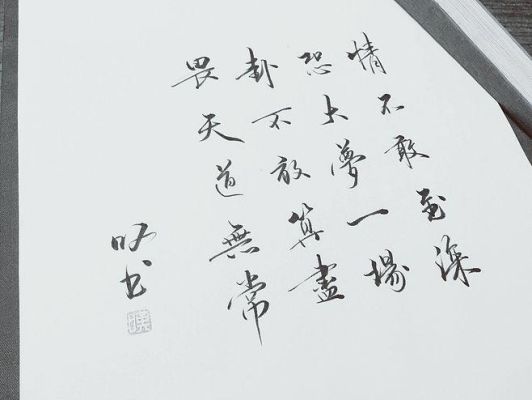 情不敢至深
恐大夢一場
卦不敢算盡
畏天道無常